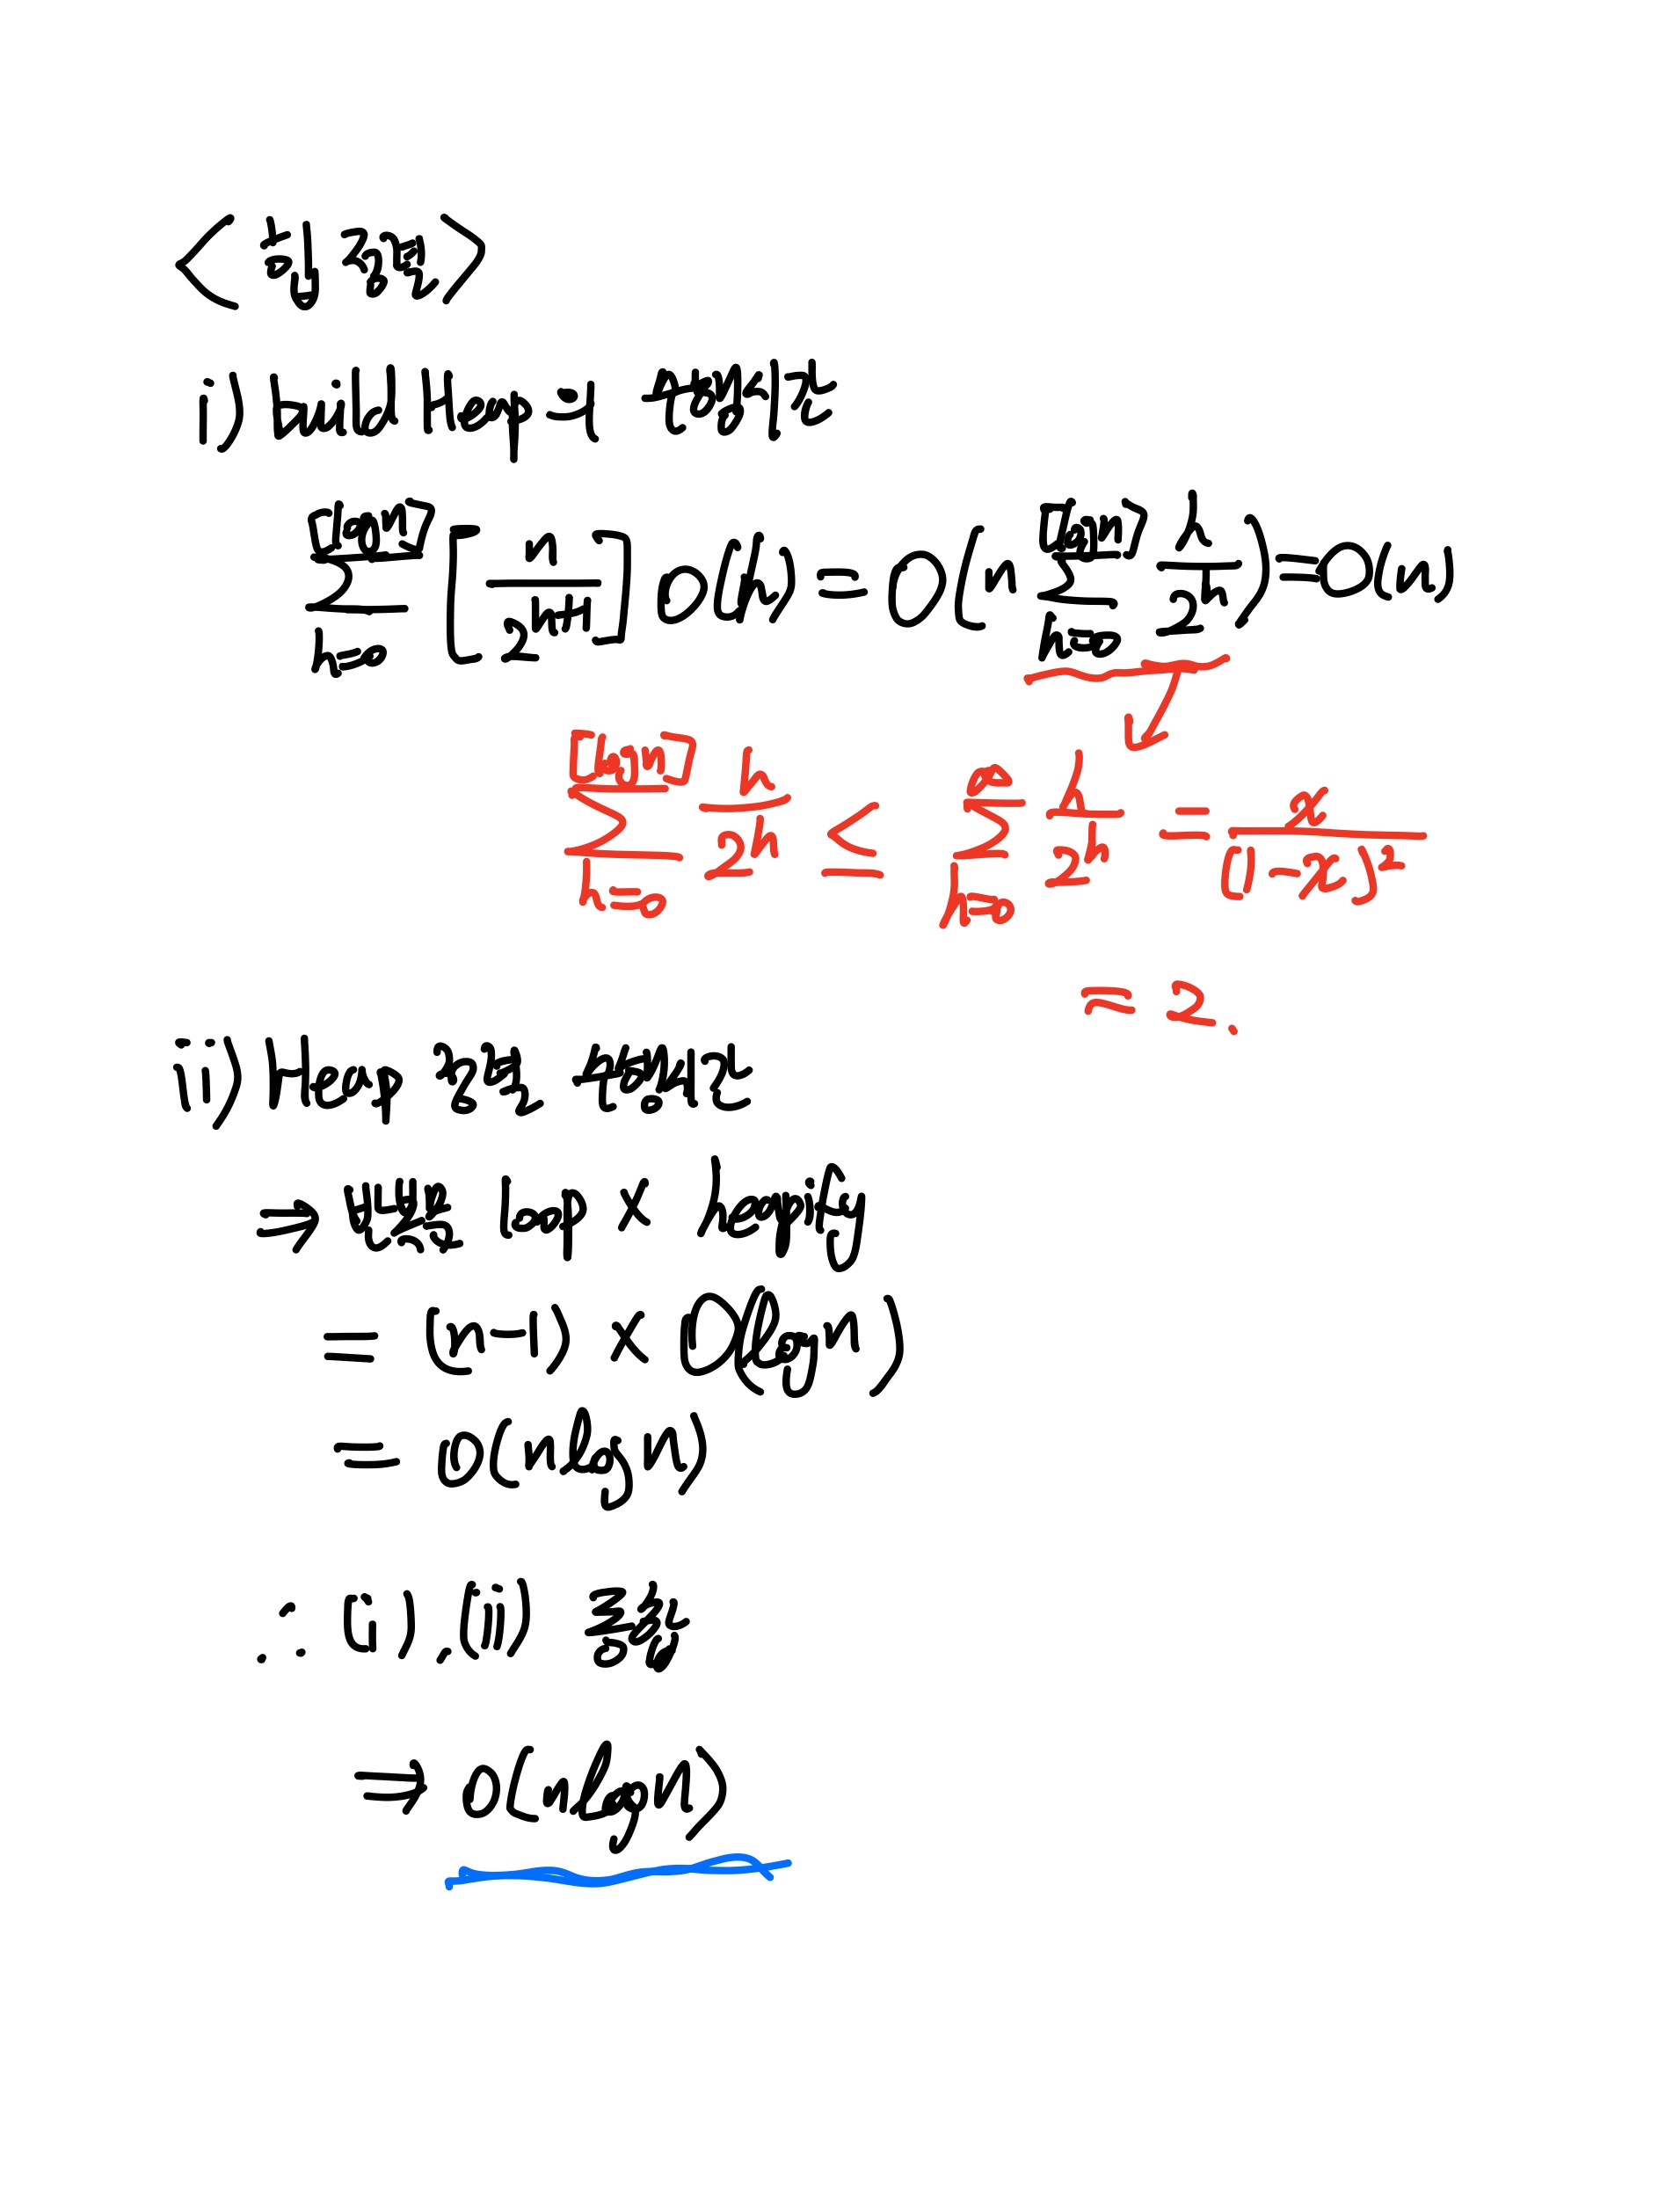 <힙 정렬>
i) build Heap의 수행시간
⌊logn⌋∑h=0 ⌈n/2^(h+1)⌉ O(h) = O(n ⌊logn⌋∑h=0 h/2^h) = O(n)
⌊logn⌋∑h=0 h/2^h ≤ ∞∑h=0 h/2^h = x/(1-x)²
≈ 2.
ii) Heap 정렬 수행시간
⇒ loop × heapify
= (n-1) × O(logn)
= O(nlogn)
∴ (i), (ii) 종합
⇒ O(nlogn)